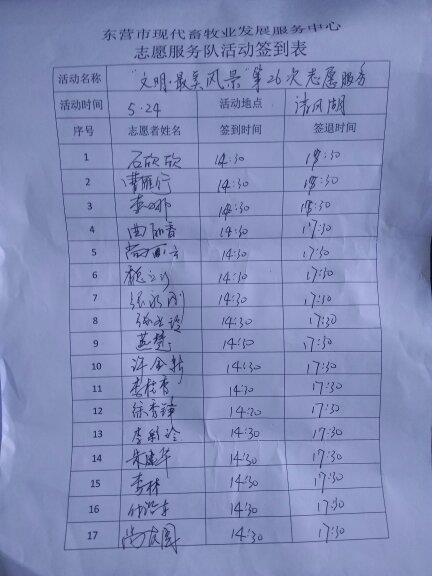 东营市现代畜牧业发展服务中心
志愿服务队活动签到表
活动名称 "文明·最美风景"第26次志愿服务
活动时间 5.24 活动地点 清风湖
序号 志愿者姓名 签到时间 签退时间
1 石欣欣 14:30 18:30
2 曹雁行 14:30 18:30
3 李娜 14:30 18:30
4 曲丽香 14:30 17:30
5 14:30 17:30
6 14:30 17:30
7 张永刚 14:30 17:30
8 14:30 17:30
9 燕梦 14:30 17:30
10 许金新 14:30 17:30
11 李桂香 14:30 17:30
12 徐秀锋 14:30 17:30
13 李彩玲 14:30 17:30
14 朱建华 14:30 17:30
15 李林 14:30 17:30
16 14:30 17:30
17 尚友国 14:30 17:30